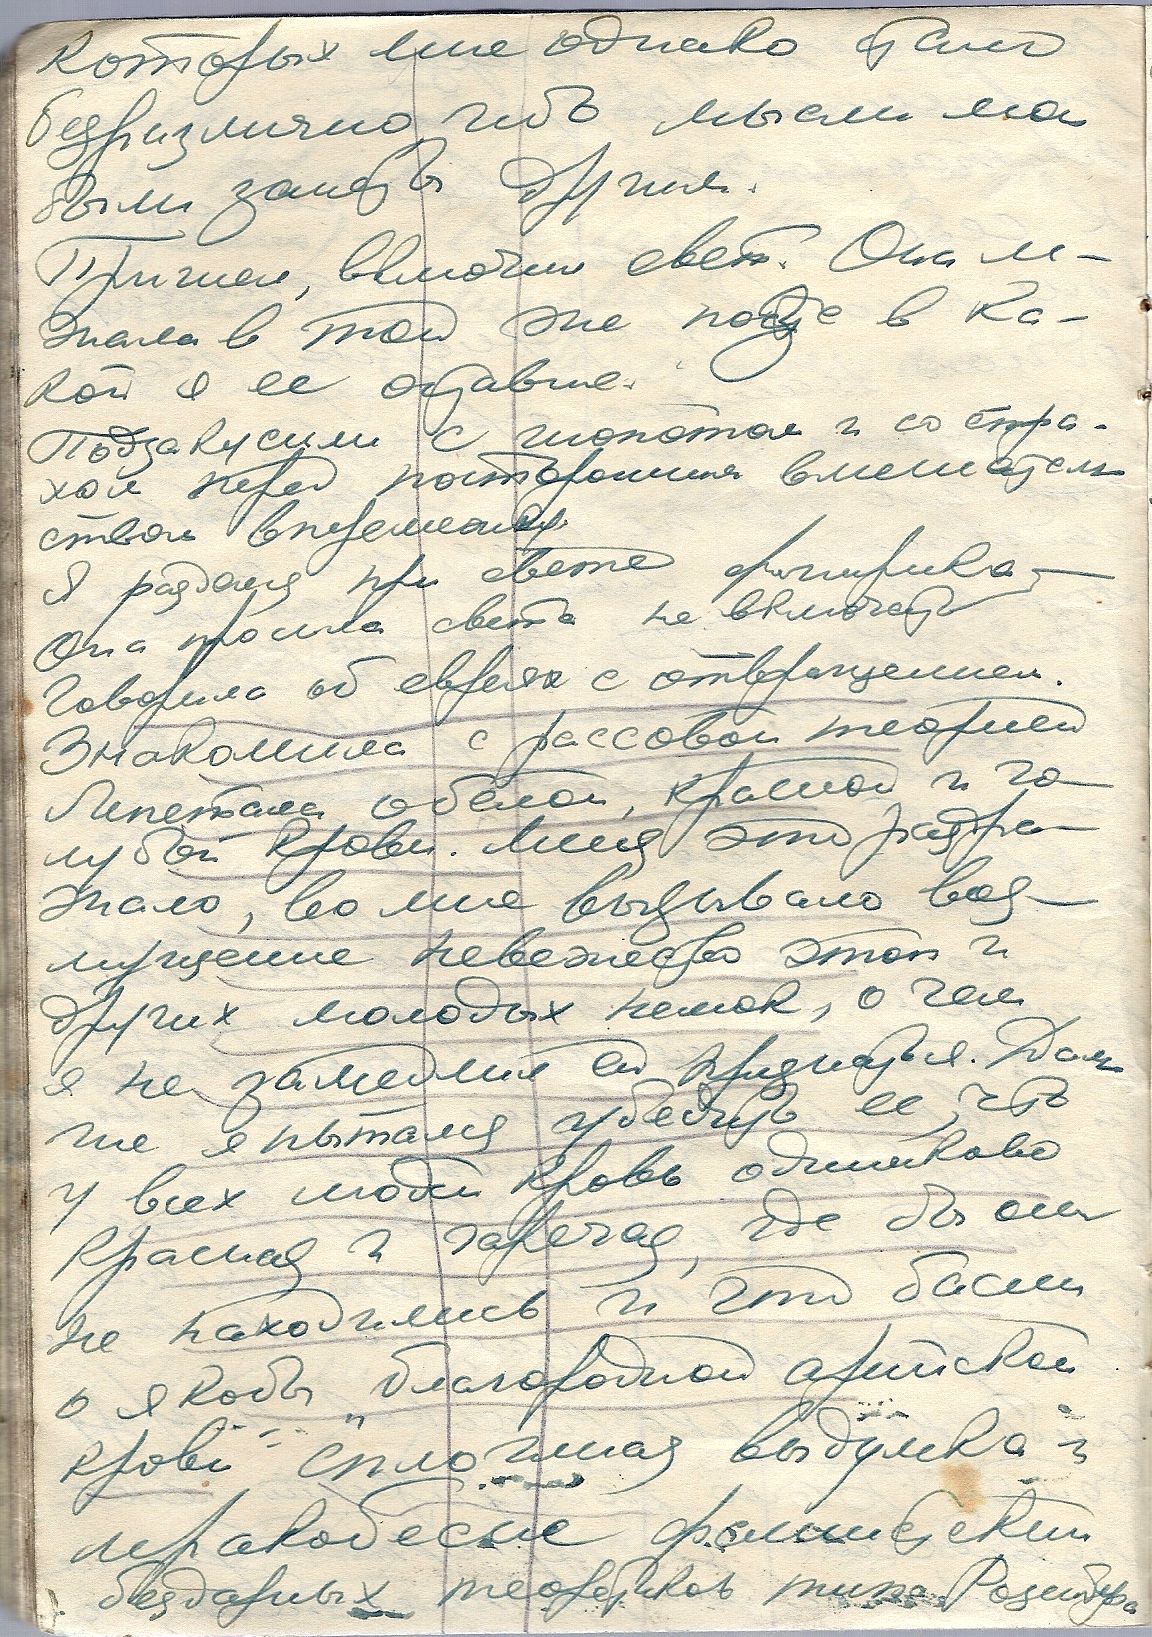 которых мне однако было
безразлично, ибо мысли мои
были заняты другим.
Пришел, включил свет. Она ле-
жала в той же позе в ка-
кой я ее оставил.
Подзакусили с шопотом и со стра-
хом перед посторонним вмешатель
ством
Я разделся при свете фонарика –
Она просила света не включать
Говорила об евреях с отвращением.
Знакомила с рассовой теорией
Лепетала о белой, красной и го-
лубой крови. Меня это раздра-
жало, во мне вызывало воз-
мущение невежество этой и
других молодых немок, о чем
я не замедлил ей признаться. Даль
ше я пытался убедить ее, что
у всех людей кровь одинаково
красная и горячая, где бы они
не находились и что басни
о якобы „благородной арийской
крови" сплошная выдумка и
мракобесие фашистских
бездарных теоретиков типа Розенберга